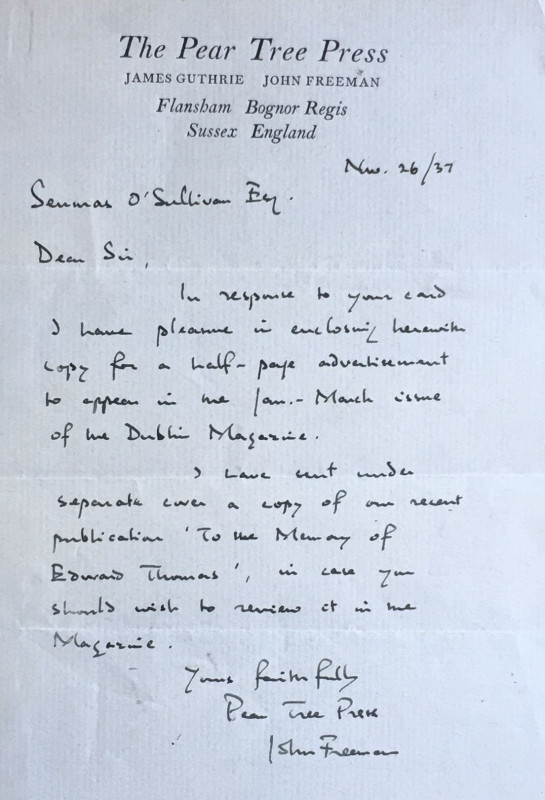 The Pear Tree Press
JAMES GUTHRIE JOHN FREEMAN
Flansham Bognor Regis
Sussex England
Nov. 26/37
Seumas O'Sullivan Esq.
Dear Sir,
In response to your card
I have pleasure in enclosing herewith
copy for a half-page advertisement
to appear in the Jan.-March issue
of the Dublin Magazine.
I have sent under
separate cover a copy of our recent
publication 'To the Memory of
Edward Thomas', in case you
should wish to review it in the
Magazine.
Yours faithfully
Pear Tree Press
John Freeman